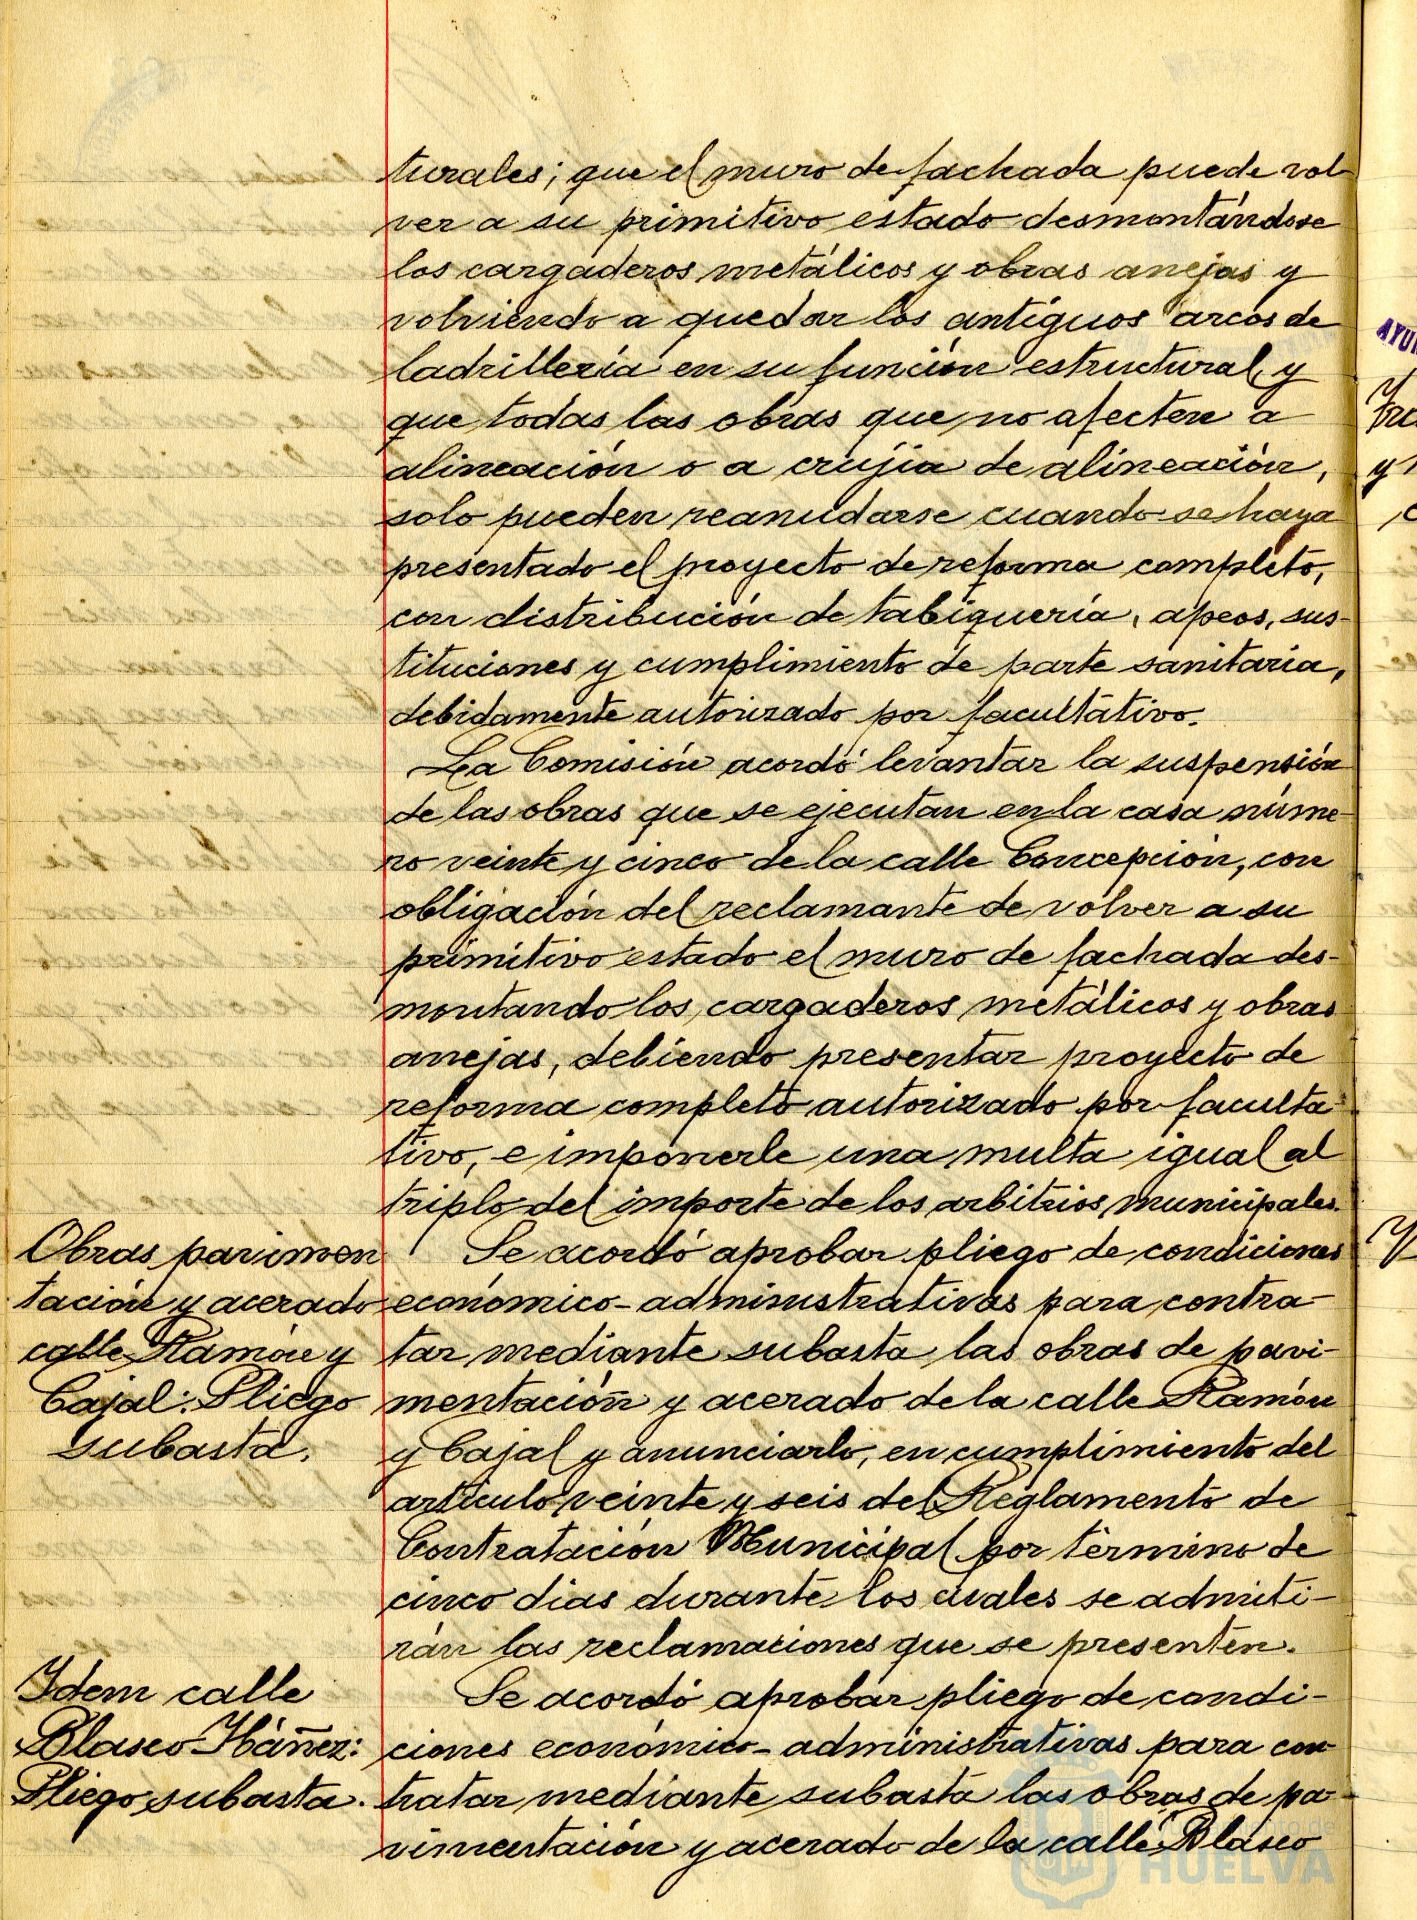 turales; que el muro de fachada puede vol-
ver a su primitivo estado desmontándose
los cargaderos metálicos y obras anejas y
volviendo a quedar los antiguos arcos de
ladrillería en su función estructural y
que todas las obras que no afecten a
alineación o a crujia de alineación,
solo pueden reanudarse cuando se haya
presentado el proyecto de reforma completo,
con distribución de tabiquería, apeos, sus-
tituciones y cumplimiento de parte sanitaria,
debidamente autorizado por facultativo.
La Comisión acordó levantar la suspensión
de las obras que se ejecutan en la casa núme-
ro veinte y cinco de la calle Concepción, con
obligación del reclamante de volver a su
primitivo estado el muro de fachada des-
montando los cargaderos metálicos y obras
anejas, debiendo presentar proyecto de
reforma completo autorizado por faculta-
tivo, e imponerle una multa igual al
triplo del importe de los arbitrios municipales.
Obras pavimen
tación y acerado
calle Ramón y
Cajal: Pliego
subasta.
Se acordó aprobar pliego de condiciones
económico-administrativas para contra-
tar mediante subasta las obras de pavi-
mentación y acerado de la calle Ramón
y Cajal y anunciarlo, en cumplimiento del
artículo veinte y seis del Reglamento de
Contratación Municipal por término de
cinco dias durante los cuales se admiti-
rán las reclamaciones que se presenten.
Idem calle
Blasco Ibáñez:
Pliego subasta.
Se acordó aprobar pliego de condi-
ciones económico-administrativas para con-
tratar mediante subasta las obras de pa-
vimentación y acerado de la calle Blasco
HUELVA